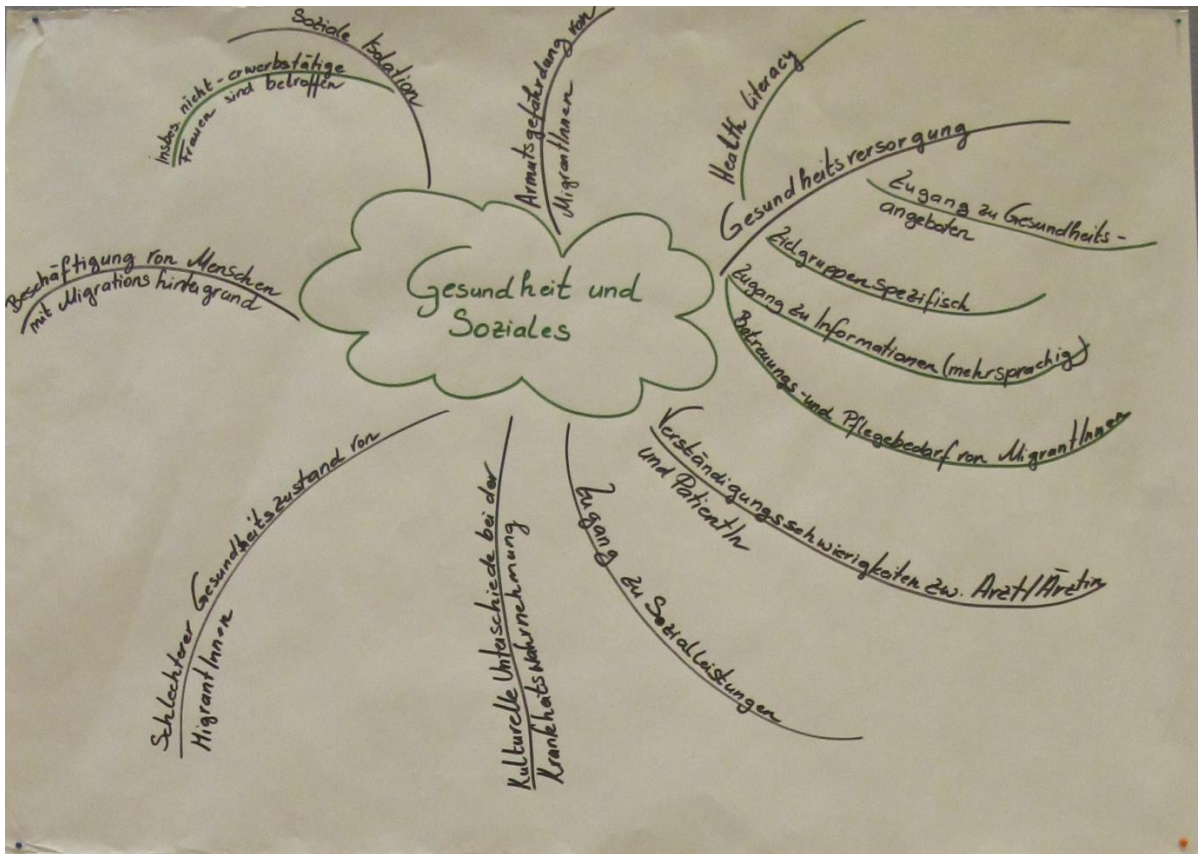 Gesundheit und
Soziales
Soziale Isolation
Insbes. nicht-erwerbstätige
Frauen sind betroffen
Armutsgefährdung von
MigrantInnen
Health Literacy
Gesundheitsversorgung
Zugang zu Gesundheits-
angeboten
Zielgruppenspezifisch
Zugang zu Informationen (mehrsprachig)
Betreuungs- und Pflegebedarf von MigrantInnen
Verständigungsschwierigkeiten zw. Arzt/Ärztin
und PatientIn
Zugang zu Sozialleistungen
Kulturelle Unterschiede bei der
Krankheitswahrnehmung
Schlechterer Gesundheitszustand von
MigrantInnen
Beschäftigung von Menschen
mit Migrationshintergrund